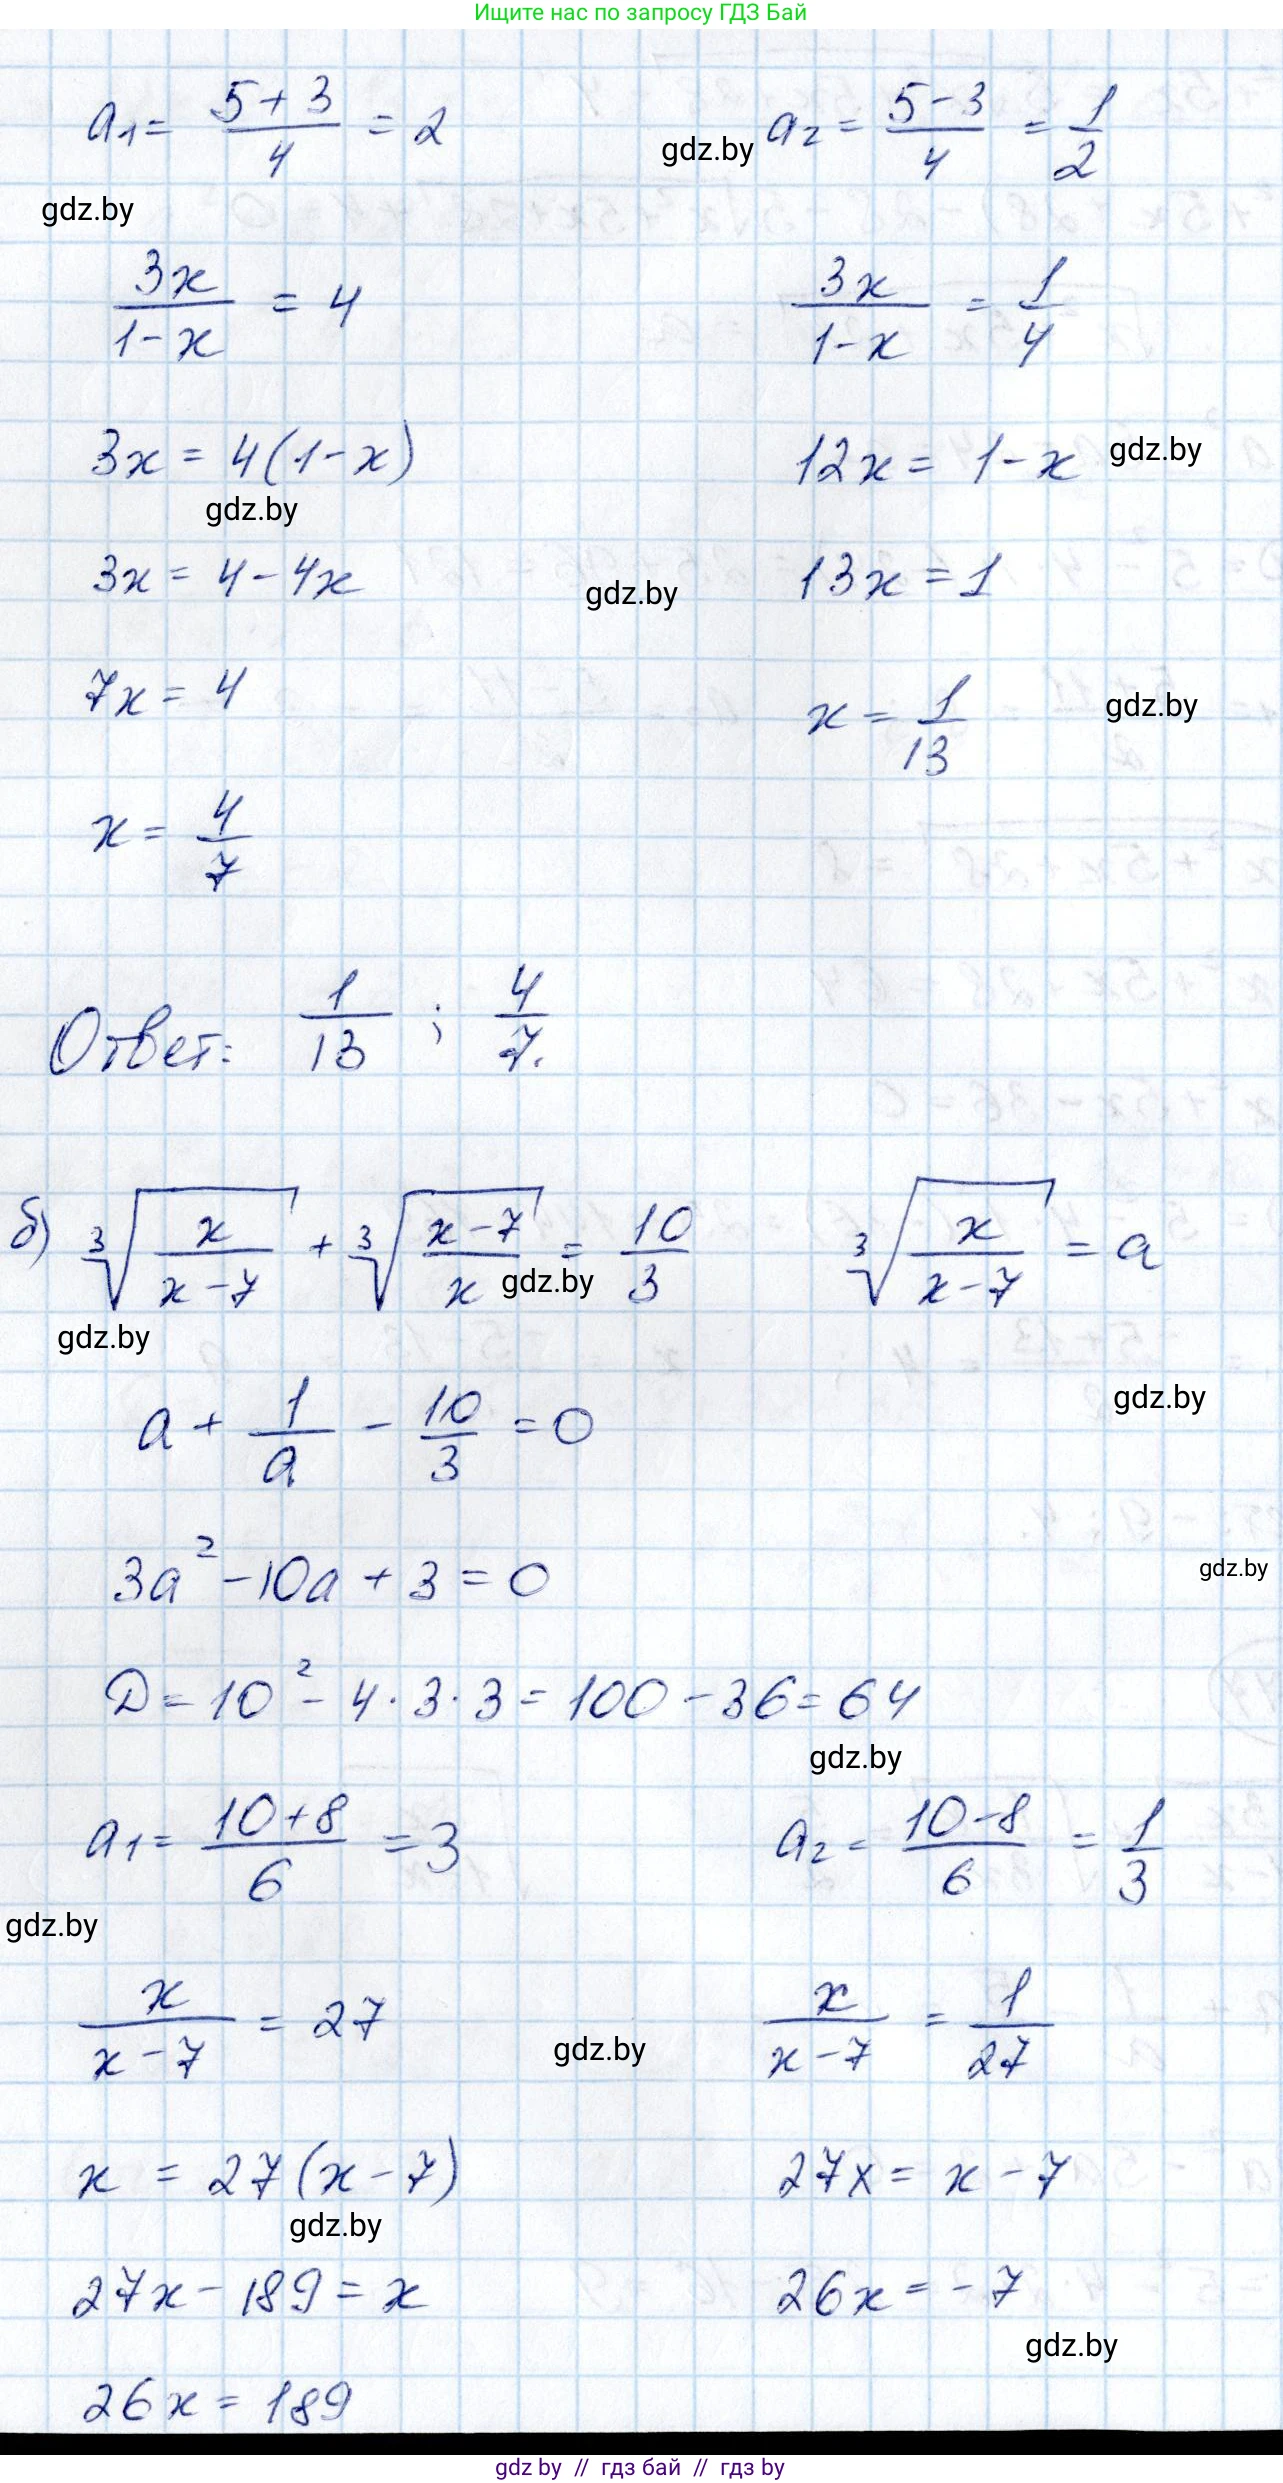 Ищите нас по запросу ГДЗ Бай
a₁ = (5+3)/4 = 2    a₂ = (5-3)/4 = 1/2
gdz.by
gdz.by
3x/(1-x) = 4    3x/(1-x) = 1/4
3x = 4(1-x)    12x = 1-x
gdz.by
gdz.by
3x = 4-4x    13x = 1
gdz.by
7x = 4    x = 1/13
gdz.by
x = 4/7
Ответ: 1/13 ; 4/7.
б) ∛(x/(x-7)) + ∛((x-7)/x) = 10/3    ∛(x/(x-7)) = a
gdz.by
gdz.by
a + 1/a - 10/3 = 0
gdz.by
3a² - 10a + 3 = 0
gdz.by
D = 10² - 4·3·3 = 100 - 36 = 64
gdz.by
a₁ = (10+8)/6 = 3    a₂ = (10-8)/6 = 1/3
gdz.by
x/(x-7) = 27    x/(x-7) = 1/27
gdz.by
x = 27(x-7)    27x = x-7
gdz.by
27x - 189 = x    26x = -7
gdz.by
26x = 189
gdz by // гдз бай // гдз by